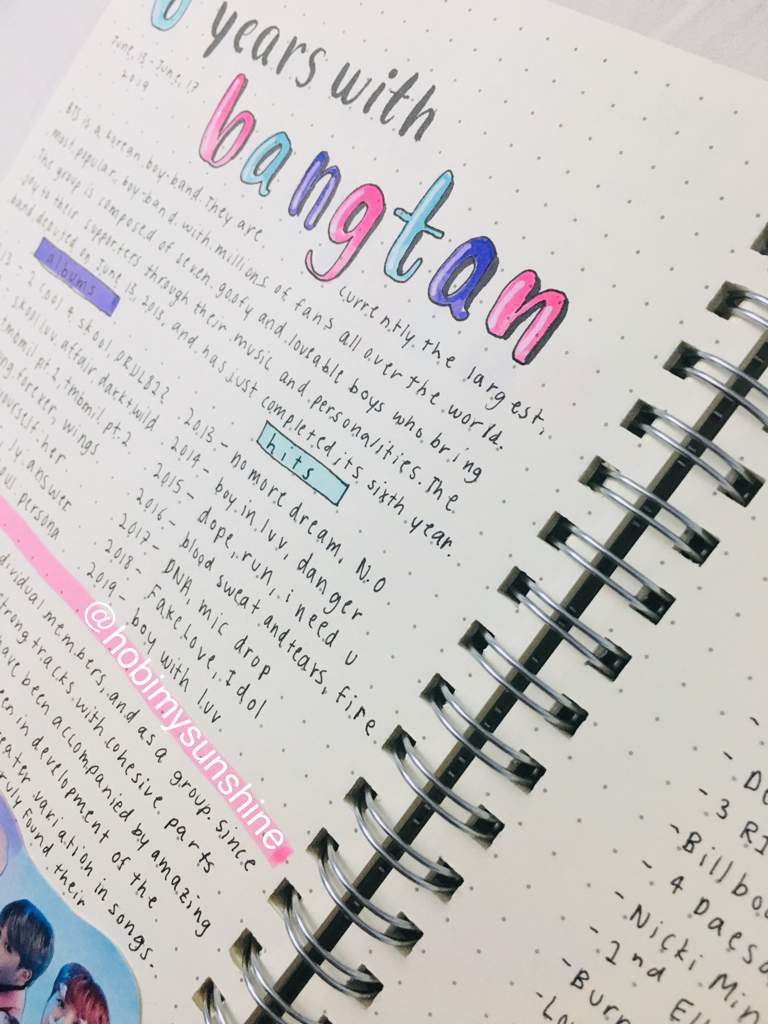 years with
bangtan
June, 13 - June, 17
2019
BTS is a korean boy-band. They are currently the largest,
most popular, boy-band with millions of fans all over the world.
The group is composed of seven goofy and loveable boys who bring
joy to their supporters through their music and personalities. The
band debuted on June 13, 2013, and has just completed its sixth year.
albums
13 - 2 cool 4 skool, ORUL82?
skool luv affair, dark&wild
pt 2, tmbmil pt.2
forever, wings
yourself: her
ly: answer
persona
hits
2013 - no more dream, N.O
2014 - boy in luv, danger
2015 - dope, run, i need u
2016 - blood sweat and tears, fire
2017 - DNA, mic drop
2018 - Fake Love, Idol
2019 - boy with luv
@hobimysunshine
members, and as a group. since
strong tracks with cohesive parts
have been accompanied by amazing
in development of the
variation in songs.
found their
- 3
- 4
- Nicki
- 2nd